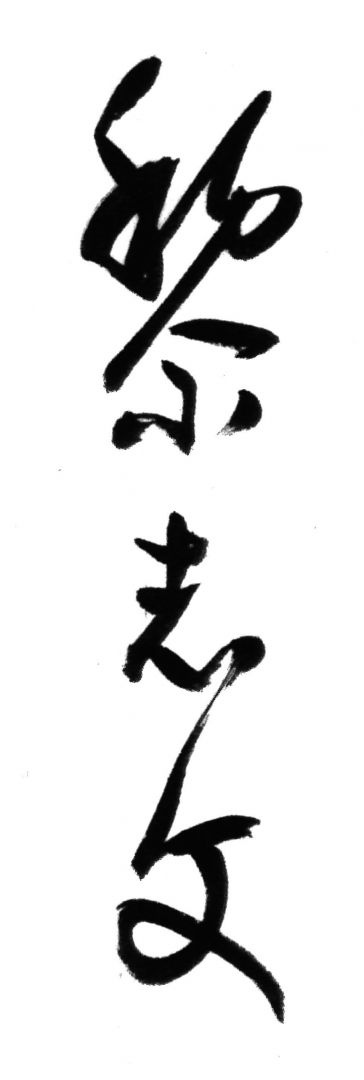 黎志文